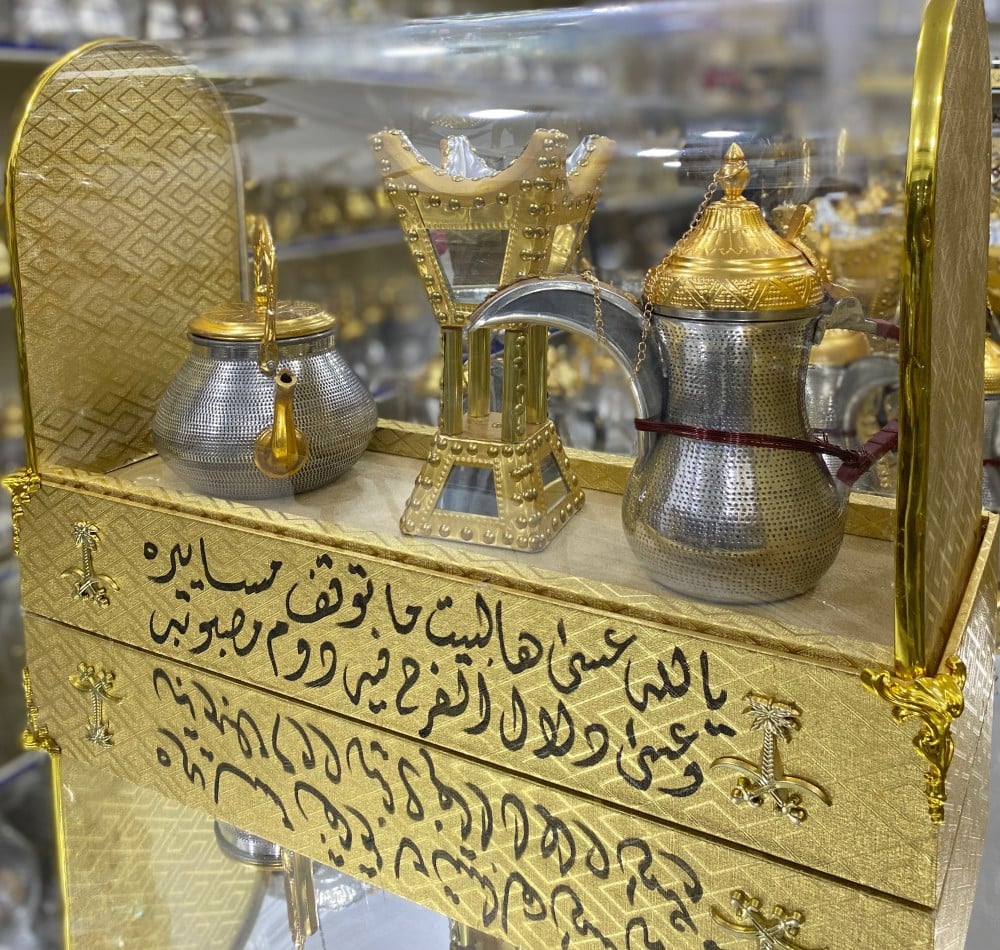 يا الله عسىٰ هالبيت ما توقف مساييره
وعسىٰ دلال الفرح فيه دوم مصبوبه